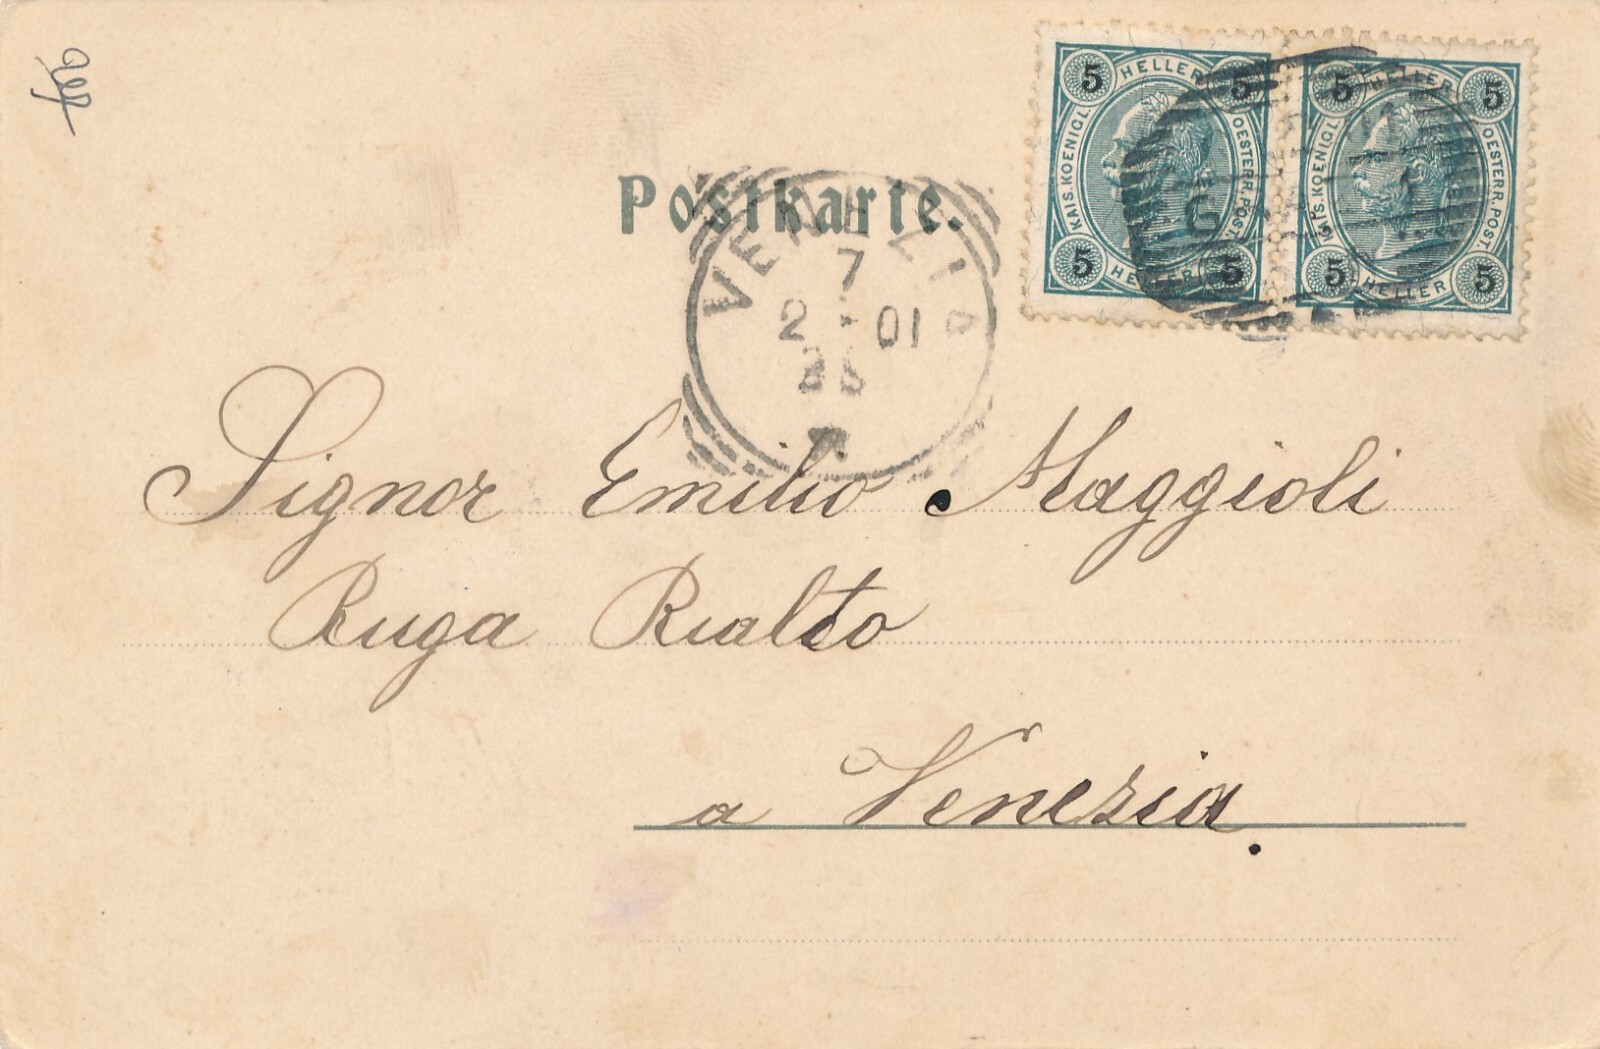 5 HELLER 5
KAIS. KOENIGL. OESTERR. POST.
5 HELLER 5
5 HELLER 5
KAIS. KOENIGL. OESTERR. POST.
5 HELLER 5
Postkarte.
VENEZIA
7
2 - 01
Signor Emilio Maggioli
Ruga Rialto
a Venezia.